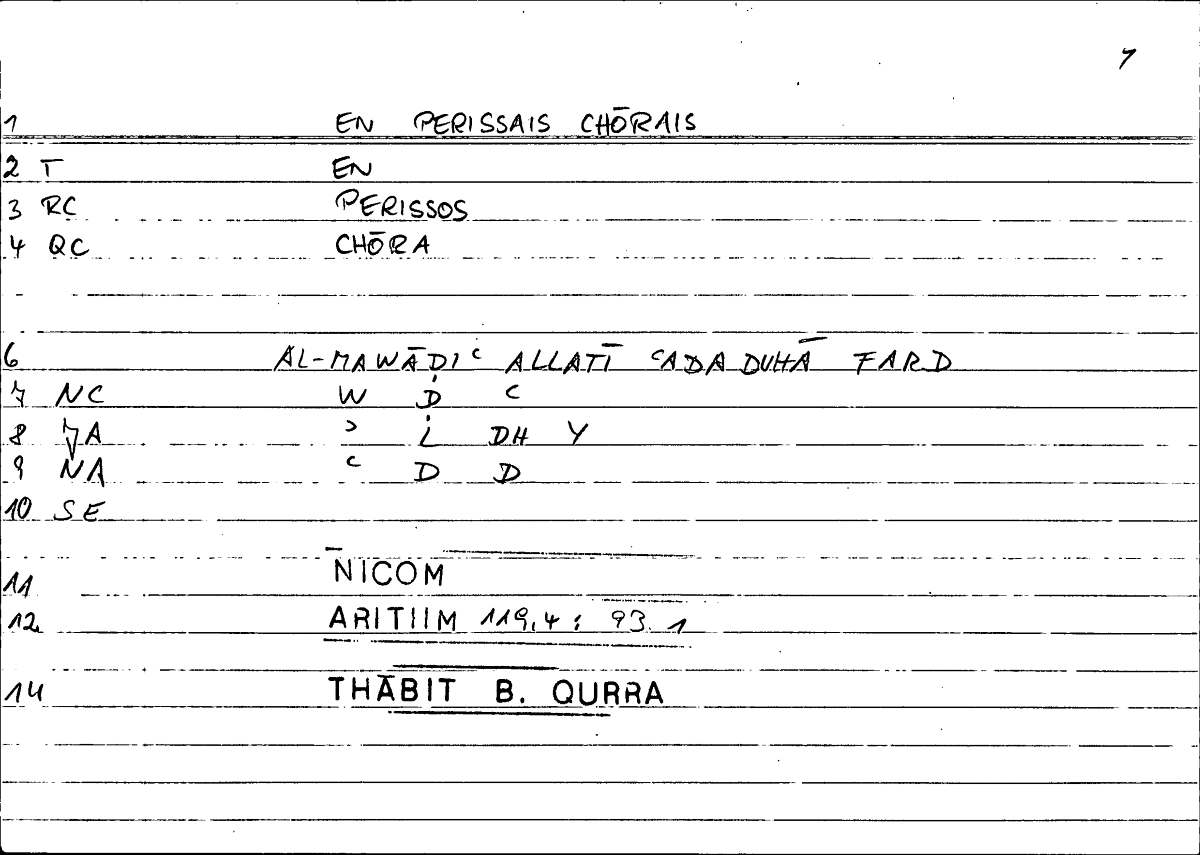 7
1 EN PERISSAIS CHŌRAIS
2 T EN
3 RC PERISSOS
4 QC CHŌRA
6 AL-MAWĀḌIʿ ALLATĪ ʿADADUHĀ FARD
7 NC W Ḍ ʿ
8 JA ʾ L DH Y
9 NA ʿ D D
10 SE
11 NICOM
12 ARITIIM 119,4 : 93.1
14 THĀBIT B. QURRA